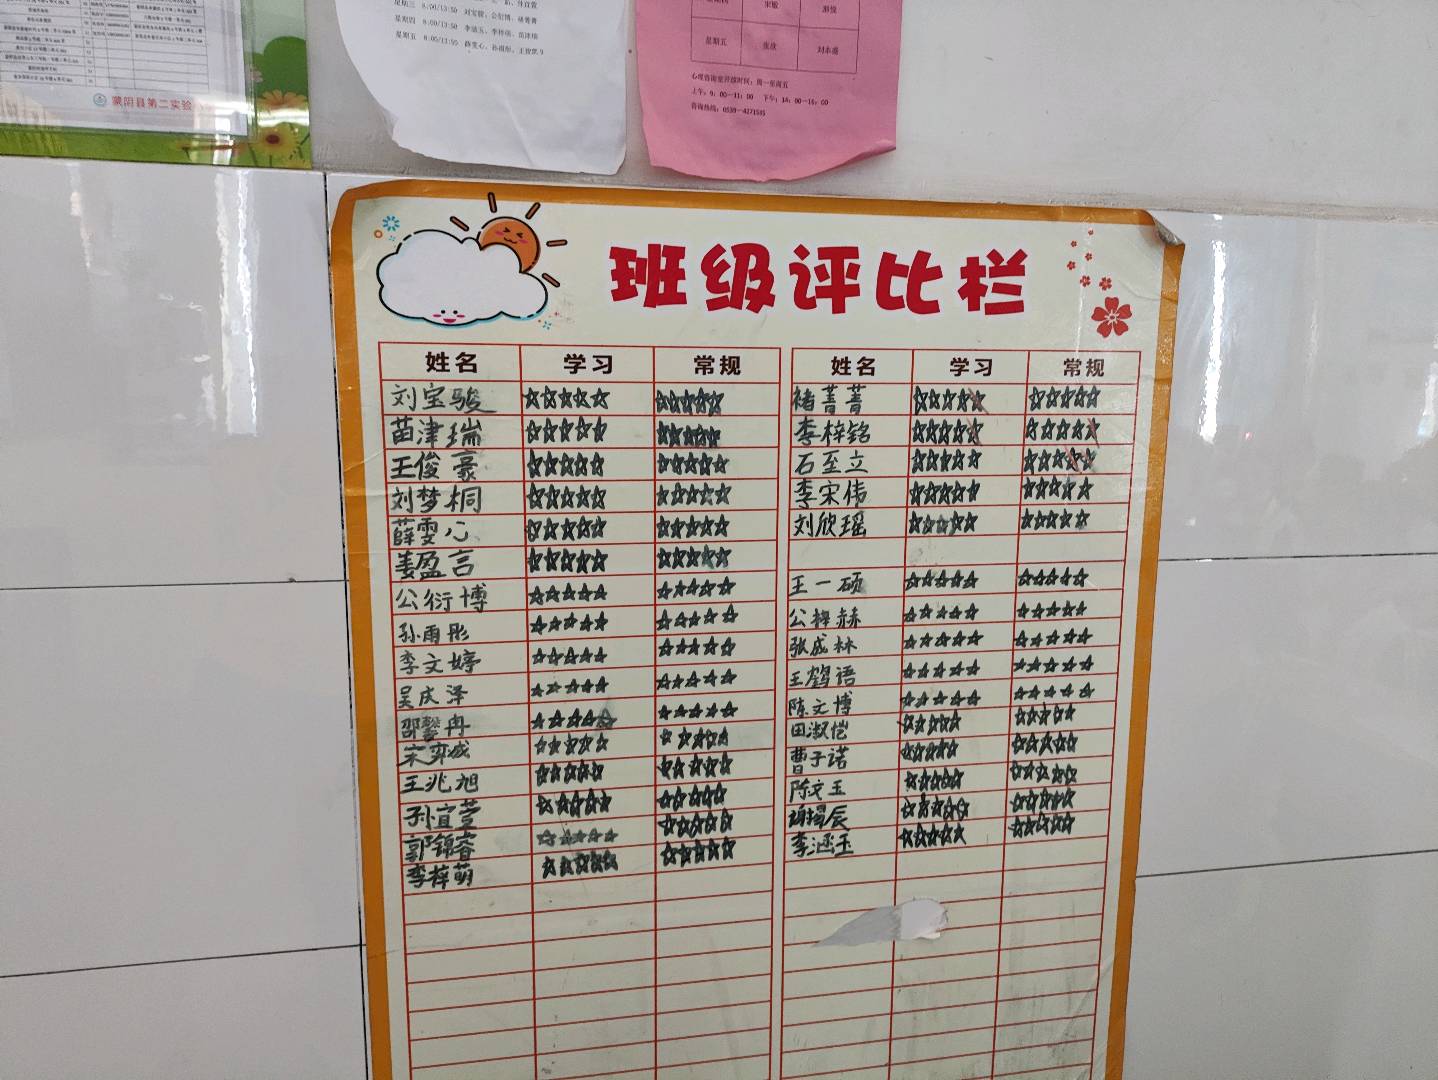 蒙阴县第二实验
星期三 8:00/13:50 刘宝骏、公衍博、褚菁菁
星期四 8:00/13:50
星期五 8:00/13:50 薛雯心、孙雨彤、王俊豪
星期五
心理咨询室开放时间：周一至周五
上午：9：00—11：00 下午：14：00—16：00
咨询热线：0539-4271535
班级评比栏
姓名 学习 常规 姓名 学习 常规
刘宝骏 ☆☆☆☆☆ ☆☆☆☆☆ 褚菁菁 ☆☆☆☆☆ ☆☆☆☆☆
苗津瑞 ☆☆☆☆☆ ☆☆☆☆☆ 李梓铭 ☆☆☆☆☆ ☆☆☆☆☆
王俊豪 ☆☆☆☆☆ ☆☆☆☆☆ 石至立 ☆☆☆☆☆ ☆☆☆☆☆
刘梦桐 ☆☆☆☆☆ ☆☆☆☆☆ 李宋伟 ☆☆☆☆☆ ☆☆☆☆☆
薛雯心 ☆☆☆☆☆ ☆☆☆☆☆ 刘欣瑶 ☆☆☆☆☆ ☆☆☆☆☆
姜盈言 ☆☆☆☆☆ ☆☆☆☆☆
公衍博 ☆☆☆☆☆ ☆☆☆☆☆ 王一硕 ☆☆☆☆☆ ☆☆☆☆☆
孙雨彤 ☆☆☆☆☆ ☆☆☆☆☆ 公梓赫 ☆☆☆☆☆ ☆☆☆☆☆
李文婷 ☆☆☆☆☆ ☆☆☆☆☆ 张成林 ☆☆☆☆☆ ☆☆☆☆☆
吴庆泽 ☆☆☆☆☆ ☆☆☆☆☆ 王鹤语 ☆☆☆☆☆ ☆☆☆☆☆
邵馨冉 ☆☆☆☆☆ ☆☆☆☆☆ 陈文博 ☆☆☆☆☆ ☆☆☆☆☆
宋弈成 ☆☆☆☆☆ ☆☆☆☆☆ 田淑恺 ☆☆☆☆☆ ☆☆☆☆☆
王兆旭 ☆☆☆☆☆ ☆☆☆☆☆ 曹子诺 ☆☆☆☆☆ ☆☆☆☆☆
孙宜萱 ☆☆☆☆☆ ☆☆☆☆☆ 陈文玉 ☆☆☆☆☆ ☆☆☆☆☆
郭锦睿 ☆☆☆☆☆ ☆☆☆☆☆ 辰 ☆☆☆☆☆ ☆☆☆☆☆
李梓萌 ☆☆☆☆☆ ☆☆☆☆☆ 李涵玉 ☆☆☆☆☆ ☆☆☆☆☆